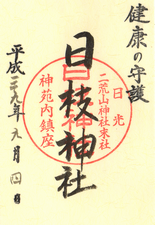 健康の守護
日光
二荒山神社末社
日枝神社
神苑内鎮座
平成二十九年九月四日